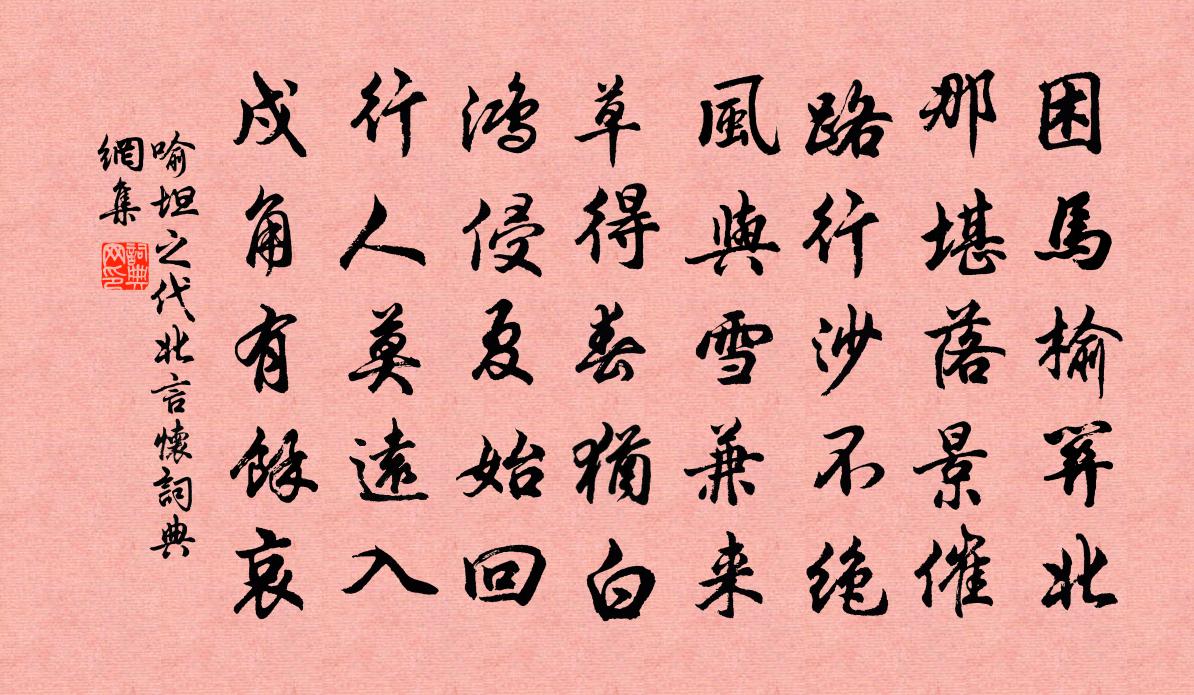 困馬榆關北
那堪落景催
路行沙不絶
風與雪兼来
草得春猶白
鴻侵夏始回
行人莫遠入
戍角有餘哀
喻坦之代北言懷詞典
網集
詞典
网印